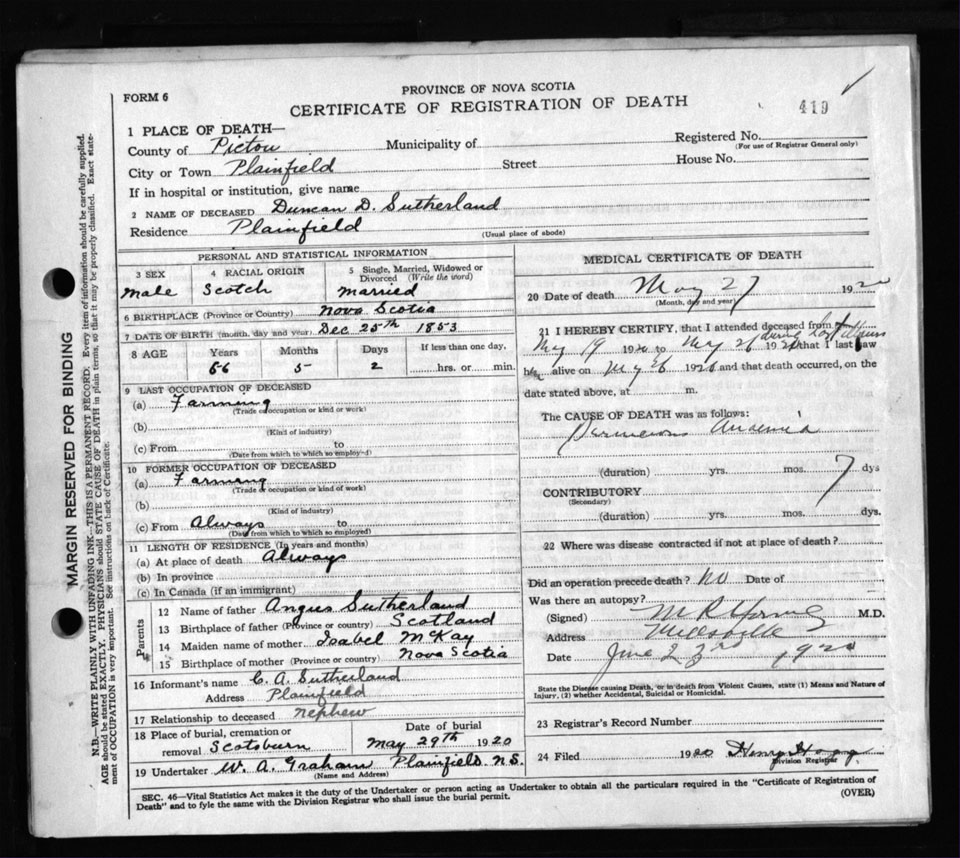 PROVINCE OF NOVA SCOTIA
FORM 6
CERTIFICATE OF REGISTRATION OF DEATH
419
1 PLACE OF DEATH—
County of Pictou Municipality of Registered No.
(For use of Registrar General only)
City or Town Plainfield Street House No.
If in hospital or institution, give name
2 NAME OF DECEASED Duncan D. Sutherland
Residence Plainfield
(Usual place of abode)
PERSONAL AND STATISTICAL INFORMATION
3 SEX 4 RACIAL ORIGIN 5 Single, Married, Widowed or Divorced (Write the word)
Male Scotch Married
6 BIRTHPLACE (Province or Country) Nova Scotia
7 DATE OF BIRTH (month, day and year) Dec 25th 1853
8 AGE Years Months Days If less than one day,
66 5 2 hrs. or min.
9 LAST OCCUPATION OF DECEASED
(a) Farming
(Trade or occupation or kind or work)
(b)
(Kind of industry)
(c) From to
(Date from which to which so employed)
10 FORMER OCCUPATION OF DECEASED
(a) Farming
(Trade or occupation or kind of work)
(b)
(Kind of industry)
(c) From Always to
(Date from which to which so employed)
11 LENGTH OF RESIDENCE (In years and months)
(a) At place of death Always
(b) In province
(c) In Canada (if an immigrant)
Parents
12 Name of father Angus Sutherland
13 Birthplace of father (Province or country) Scotland
14 Maiden name of mother Isabel McKay
15 Birthplace of mother (Province or country) Nova Scotia
16 Informant's name C. A. Sutherland
Address Plainfield
17 Relationship to deceased nephew
18 Place of burial, cremation or Date of burial
removal Scotsburn May 29th 1920
19 Undertaker W. A. Graham Plainfield. N.S.
(Name and Address)
MEDICAL CERTIFICATE OF DEATH
20 Date of death May 27 1920
(Month, day and year)
21 I HEREBY CERTIFY, that I attended deceased from during last illness
May 19 1920 to May 26 1920 that I last saw
h alive on My 26 1920 and that death occurred, on the
date stated above, at m.
The CAUSE OF DEATH was as follows:
Pernicious Anaemia
(duration) yrs. mos. 7 dys
CONTRIBUTORY
(Secondary)
(duration) yrs. mos. dys.
22 Where was disease contracted if not at place of death?
Did an operation precede death? No Date of
Was there an autopsy?
(Signed) M R Young M.D.
Address Millsville
Date June 23rd 1920
State the Disease causing Death, or in death from Violent Causes, state (1) Means and Nature of
Injury, (2) whether Accidental, Suicidal or Homicidal.
23 Registrar's Record Number
24 Filed 1920 Henry
Division Registrar
SEC. 46—Vital Statistics Act makes it the duty of the Undertaker or person acting as Undertaker to obtain all the particulars required in the "Certificate of Registration of
Death" and to fyle the same with the Division Registrar who shall issue the burial permit.
(OVER)
MARGIN RESERVED FOR BINDING
N.B.—WRITE PLAINLY WITH UNFADING INK—THIS IS A PERMANENT RECORD. Every item of information should be carefully supplied.
AGE should be stated EXACTLY. PHYSICIANS should STATE CAUSE OF DEATH in plain terms, so that it may be properly classified. Exact state-
ment of OCCUPATION is very important. See instructions on back of Certificate.